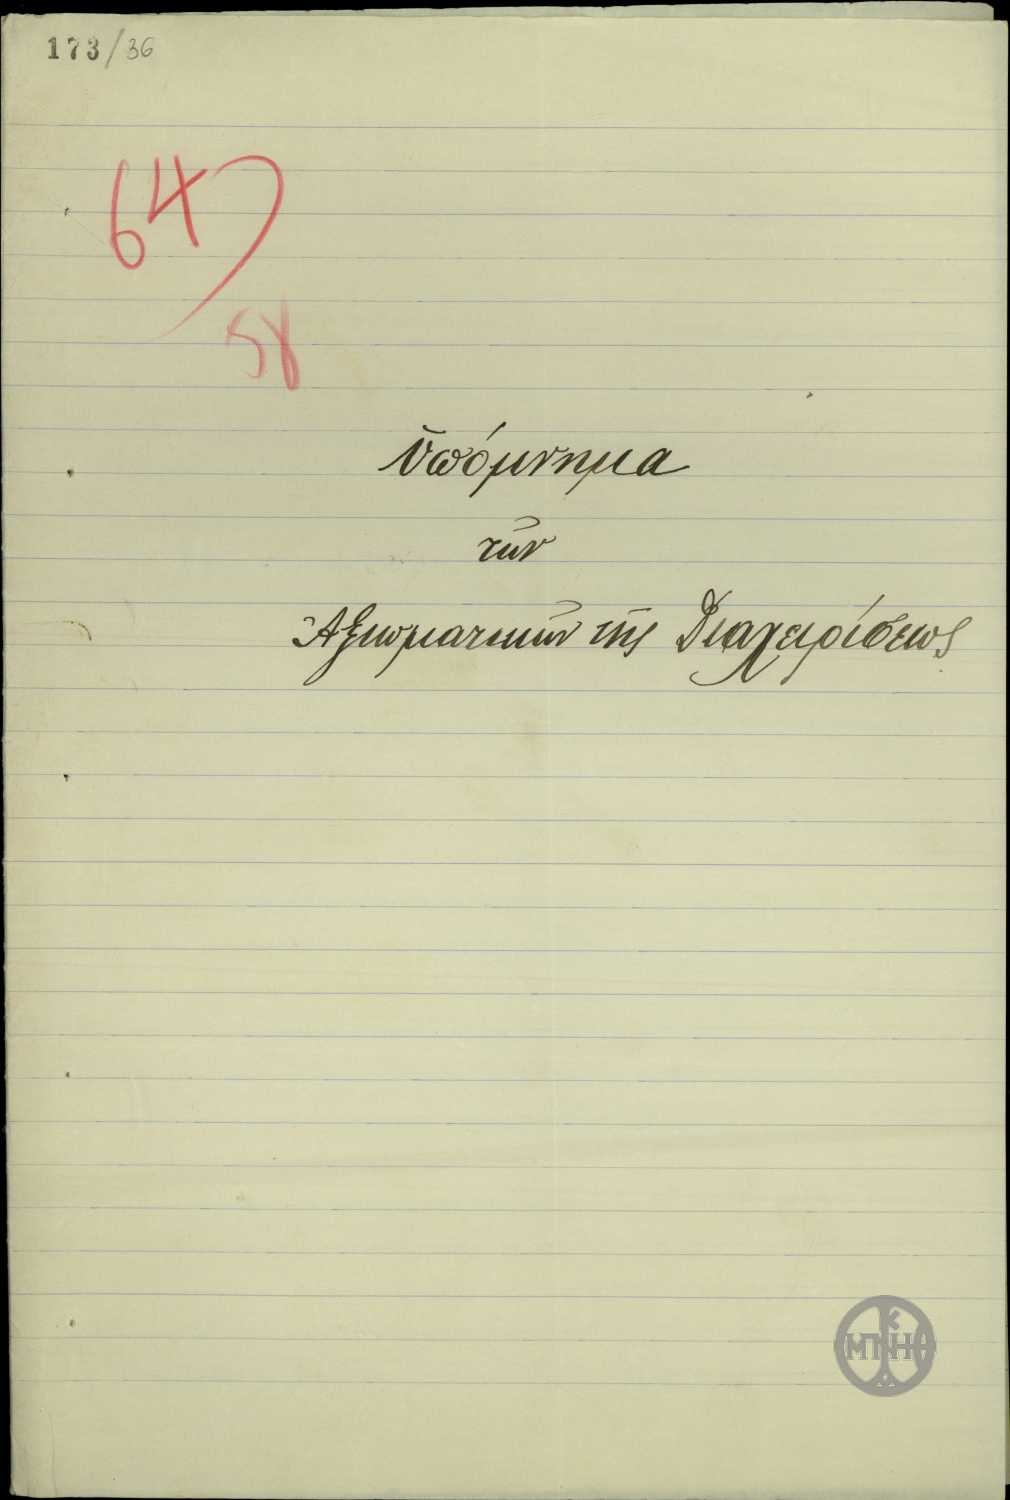 173/36
64
58
Ὑπόμνημα
τῶν
Ἀξιωματικῶν τῆς Διαχειρίσεως
ΜΠΝΗ